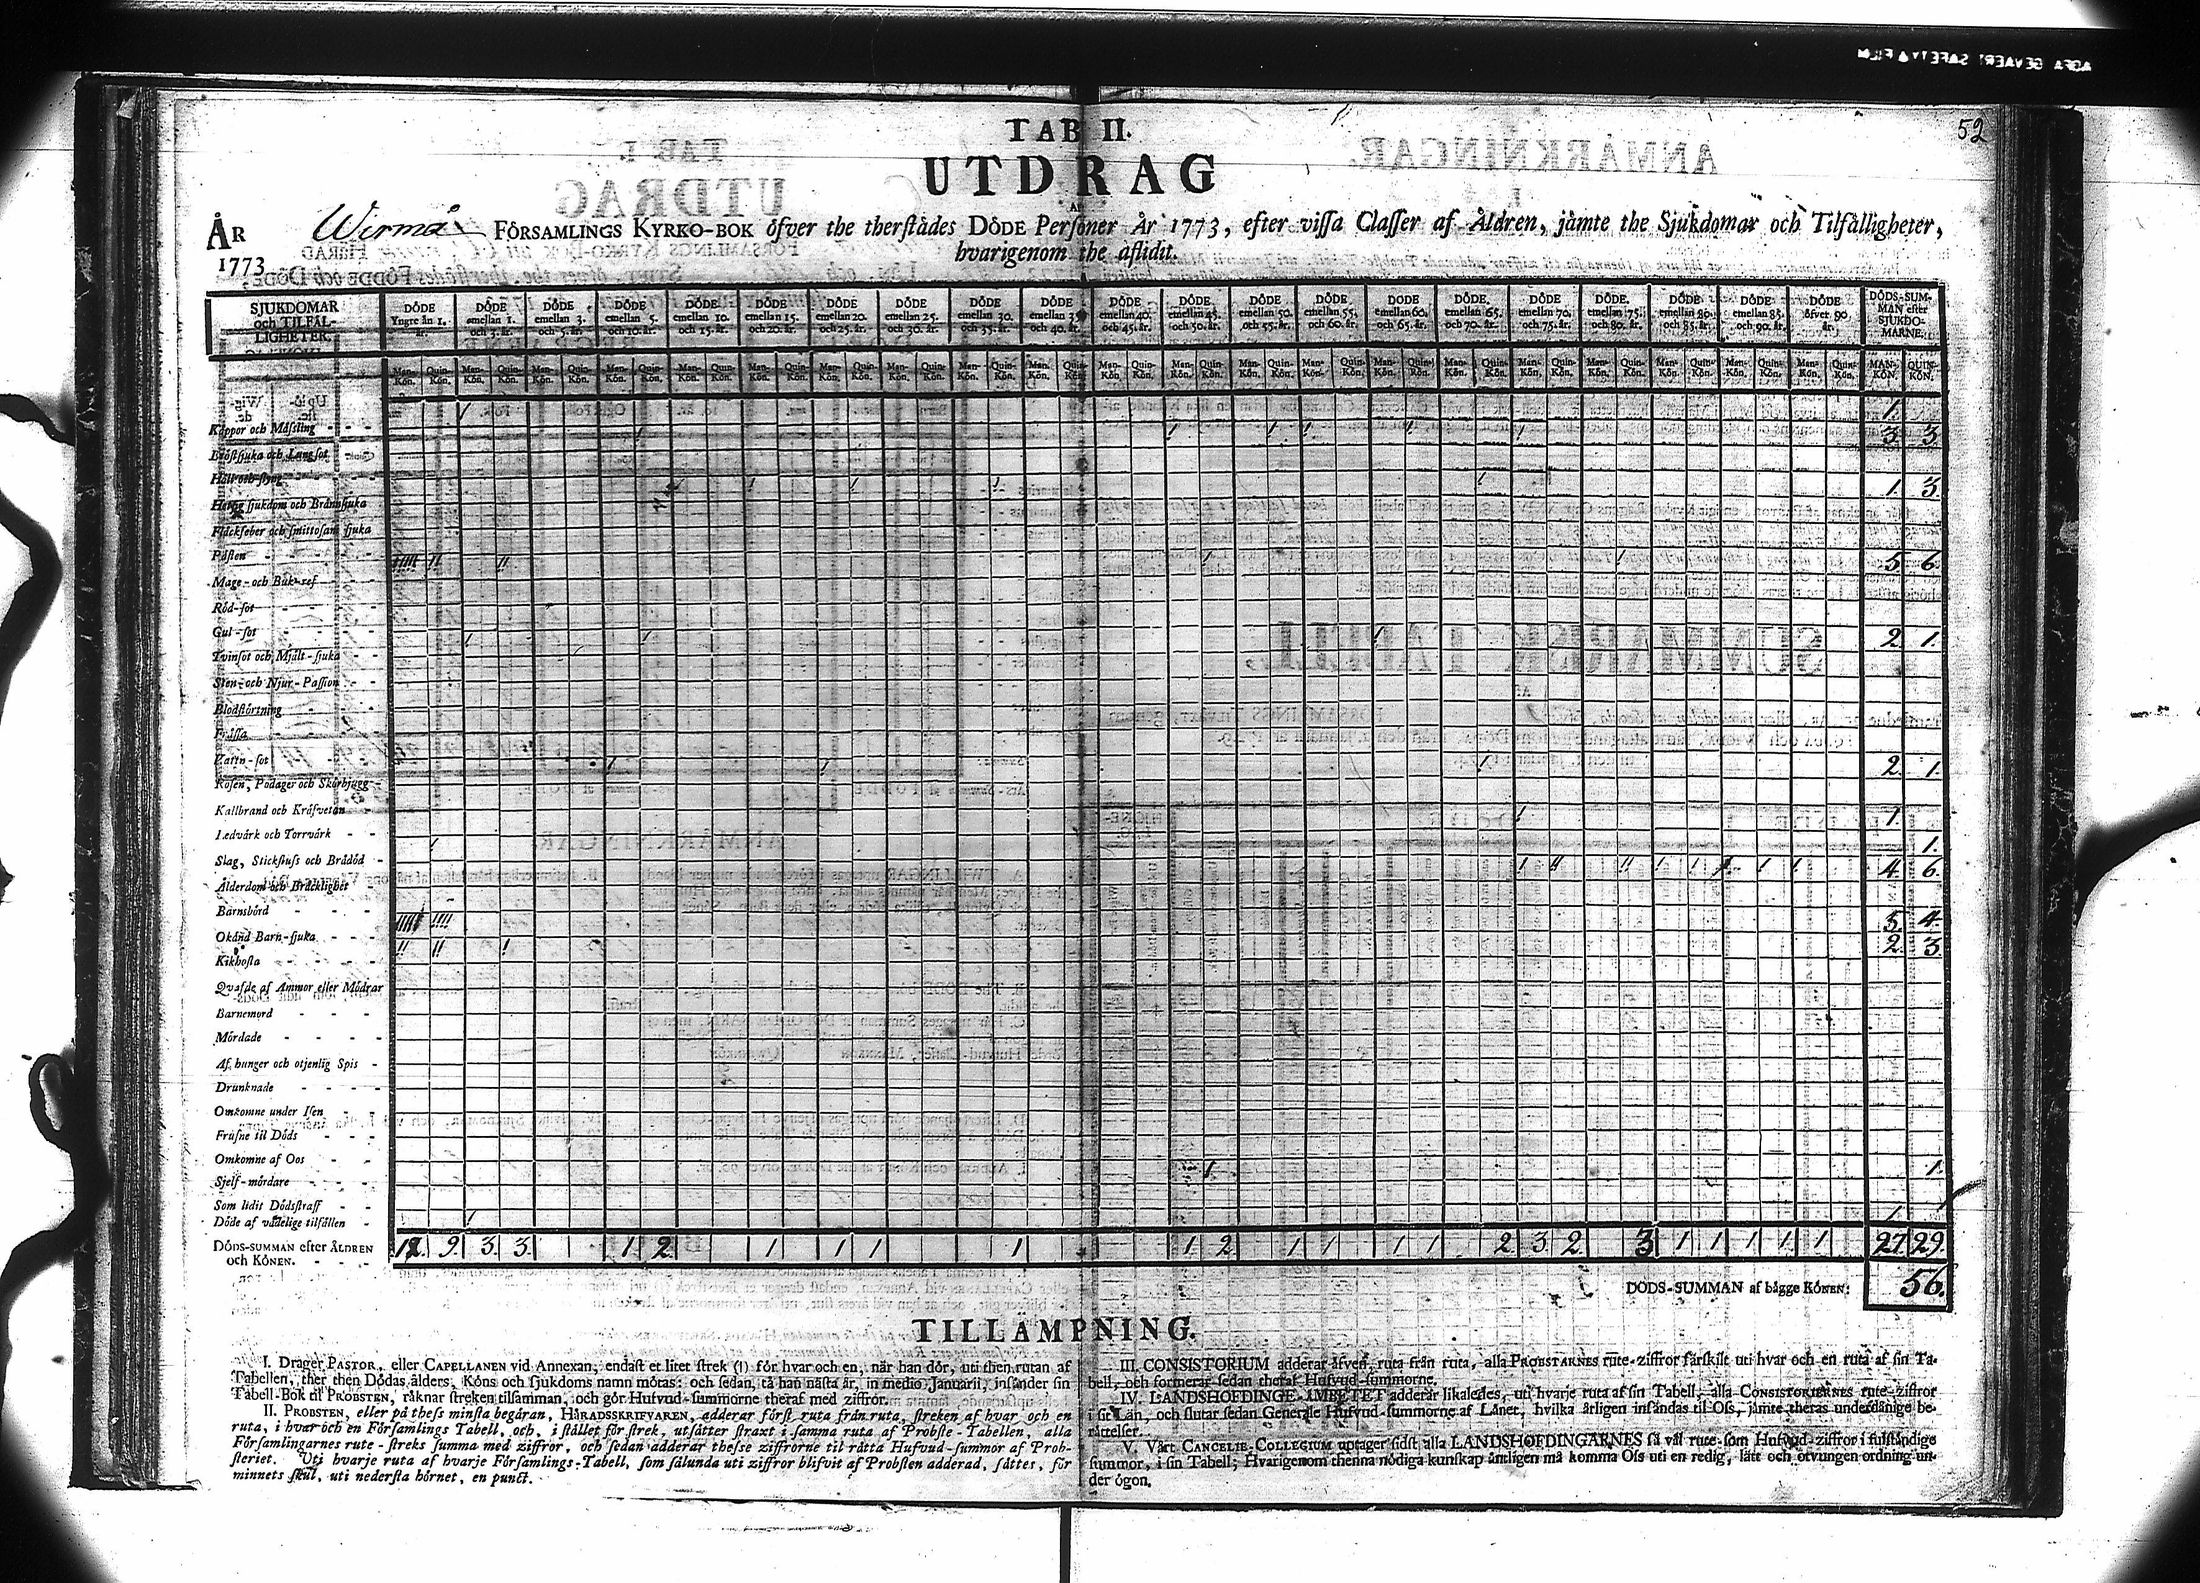 AGFA GEVAERT SAFETY FILM
52
TAB II.
UTDRAG
AF
ÅR 1773
Wirmå FÖRSAMLINGS KYRKO-BOK öfver the therstädes DÖDE Personer År 1773, efter vissa Classer af Åldren, jämte the Sjukdomar och Tilfälligheter,
hvarigenom the aflidit.
SJUKDOMAR och TILFÄLLIGHETER.
DÖDE Yngre än 1. år.
DÖDE emellan 1. och 3. år.
DÖDE emellan 3. och 5. år.
DÖDE emellan 5. och 10. år.
DÖDE emellan 10. och 15. år.
DÖDE emellan 15. och 20. år.
DÖDE emellan 20. och 25. år.
DÖDE emellan 25. och 30. år.
DÖDE emellan 30. och 35. år.
DÖDE emellan 35. och 40. år.
DÖDE emellan 40. och 45. år.
DÖDE emellan 45. och 50. år.
DÖDE emellan 50. och 55. år.
DÖDE emellan 55. och 60. år.
DÖDE emellan 60. och 65. år.
DÖDE emellan 65. och 70. år.
DÖDE emellan 70. och 75. år.
DÖDE emellan 75. och 80. år.
DÖDE emellan 80. och 85. år.
DÖDE emellan 85. och 90. år.
DÖDE öfver 90. år.
DÖDS-SUMMAN efter SJUKDOMARNE.
Man-Kön. Quin-Kön.
1.
Koppor och Mässling 3. 3.
Bröstsjuka och Lungsot
Håll och styng 1. 3.
Hetsig sjukdom och Brännsjuka
Fläckfeber och smittosam sjuka
Pästen 5. 6.
Mage- och Buk-ref
Röd-sot
Gul-sot 2. 1.
Tvinsot och Mjält-sjuka
Sten- och Njur-Passion
Blodstörtning
Frässa
Vattu-sot 2. 1.
Rosen, Podager och Skörbjugg
Kallbrand och Kräfvetan 1
Ledvärk och Torrvärk 1.
Slag, Stickfluss och Brådöd 4. 6.
Ålderdom och Bräcklighet
Barnsbörd 5. 4.
Okänd Barn-sjuka 2. 3
Kikhosta
Qvafde af Ammor eller Mödrar
Barnemord
Mördade
Af hunger och otjenlig Spis
Drunknade
Omkomne under Isen
Frusne til Döds
Omkomne af Oos 1.
Sjelf-mördare
Som lidit Dödsstraff
Döde af vådelige tilfällen 1.
DÖDS-SUMMAN efter ÅLDREN och KÖNEN. 12. 9. 3. 3. 1 2. 1 1 1 1 1 2 1 1 1 1 2 3 2 3 1 1 1 1 1 27. 29.
DÖDS-SUMMAN af bägge KÖNEN: 56.
TILLÄMPNING.
I. Drager PASTOR, eller CAPELLANEN vid Annexan, endast et litet strek (1) för hvar och en, när han dör, uti then rutan af
Tabellen, ther then Dödas ålders, Köns och sjukdoms namn mötas: och sedan, tå han nästa år, in medio Januarii, insänder sin
Tabell-Bok til PROBSTEN, räknar streken tilsamman, och gör Hufvud-summorne theraf med ziffror.
II. PROBSTEN, eller på thess minsta begäran, HÄRADSSKRIFVAREN, adderar först ruta från ruta, streken af hvar och en
ruta, i hvar och en Församlings Tabell, och, i stället för strek, utsätter straxt i samma ruta af Probste-Tabellen, alla
Församlingarnes rute-streks summa med ziffror, och sedan adderar thesse ziffrorne til rätta Hufvud-summor af Prob-
steriet. Uti hvarje ruta af hvarje Församlings-Tabell, som sålunda uti ziffror blifvit af Probsten adderad, sättes, för
minnets skul, uti nedersta hörnet, en punct.
III. CONSISTORIUM adderar äfven, ruta från ruta, alla PROBSTARNES rute-ziffror särskilt uti hvar och en ruta af sin Ta-
bell, och formerar sedan theraf Hufvud-summorne.
IV. LANDSHÖFDINGE-ÄMBETET adderar likaledes, uti hvarje ruta af sin Tabell, alla CONSISTORIERNES rute-ziffror
i sit Län, och slutar sedan Generale Hufvud-summorne af Länet, hvilka årligen insändas til Oss, jämte theras underdånige be-
rättelser.
V. Vårt CANCELIE-COLLEGIUM uptager sidst alla LANDSHÖFDINGARNES så väl rute- som Hufvud-ziffror i fulständige
summor, i sin Tabell; Hvarigenom thenna nödiga kunskap äntligen må komma Oss uti en redig, lätt och otvungen ordning un-
der ögon.